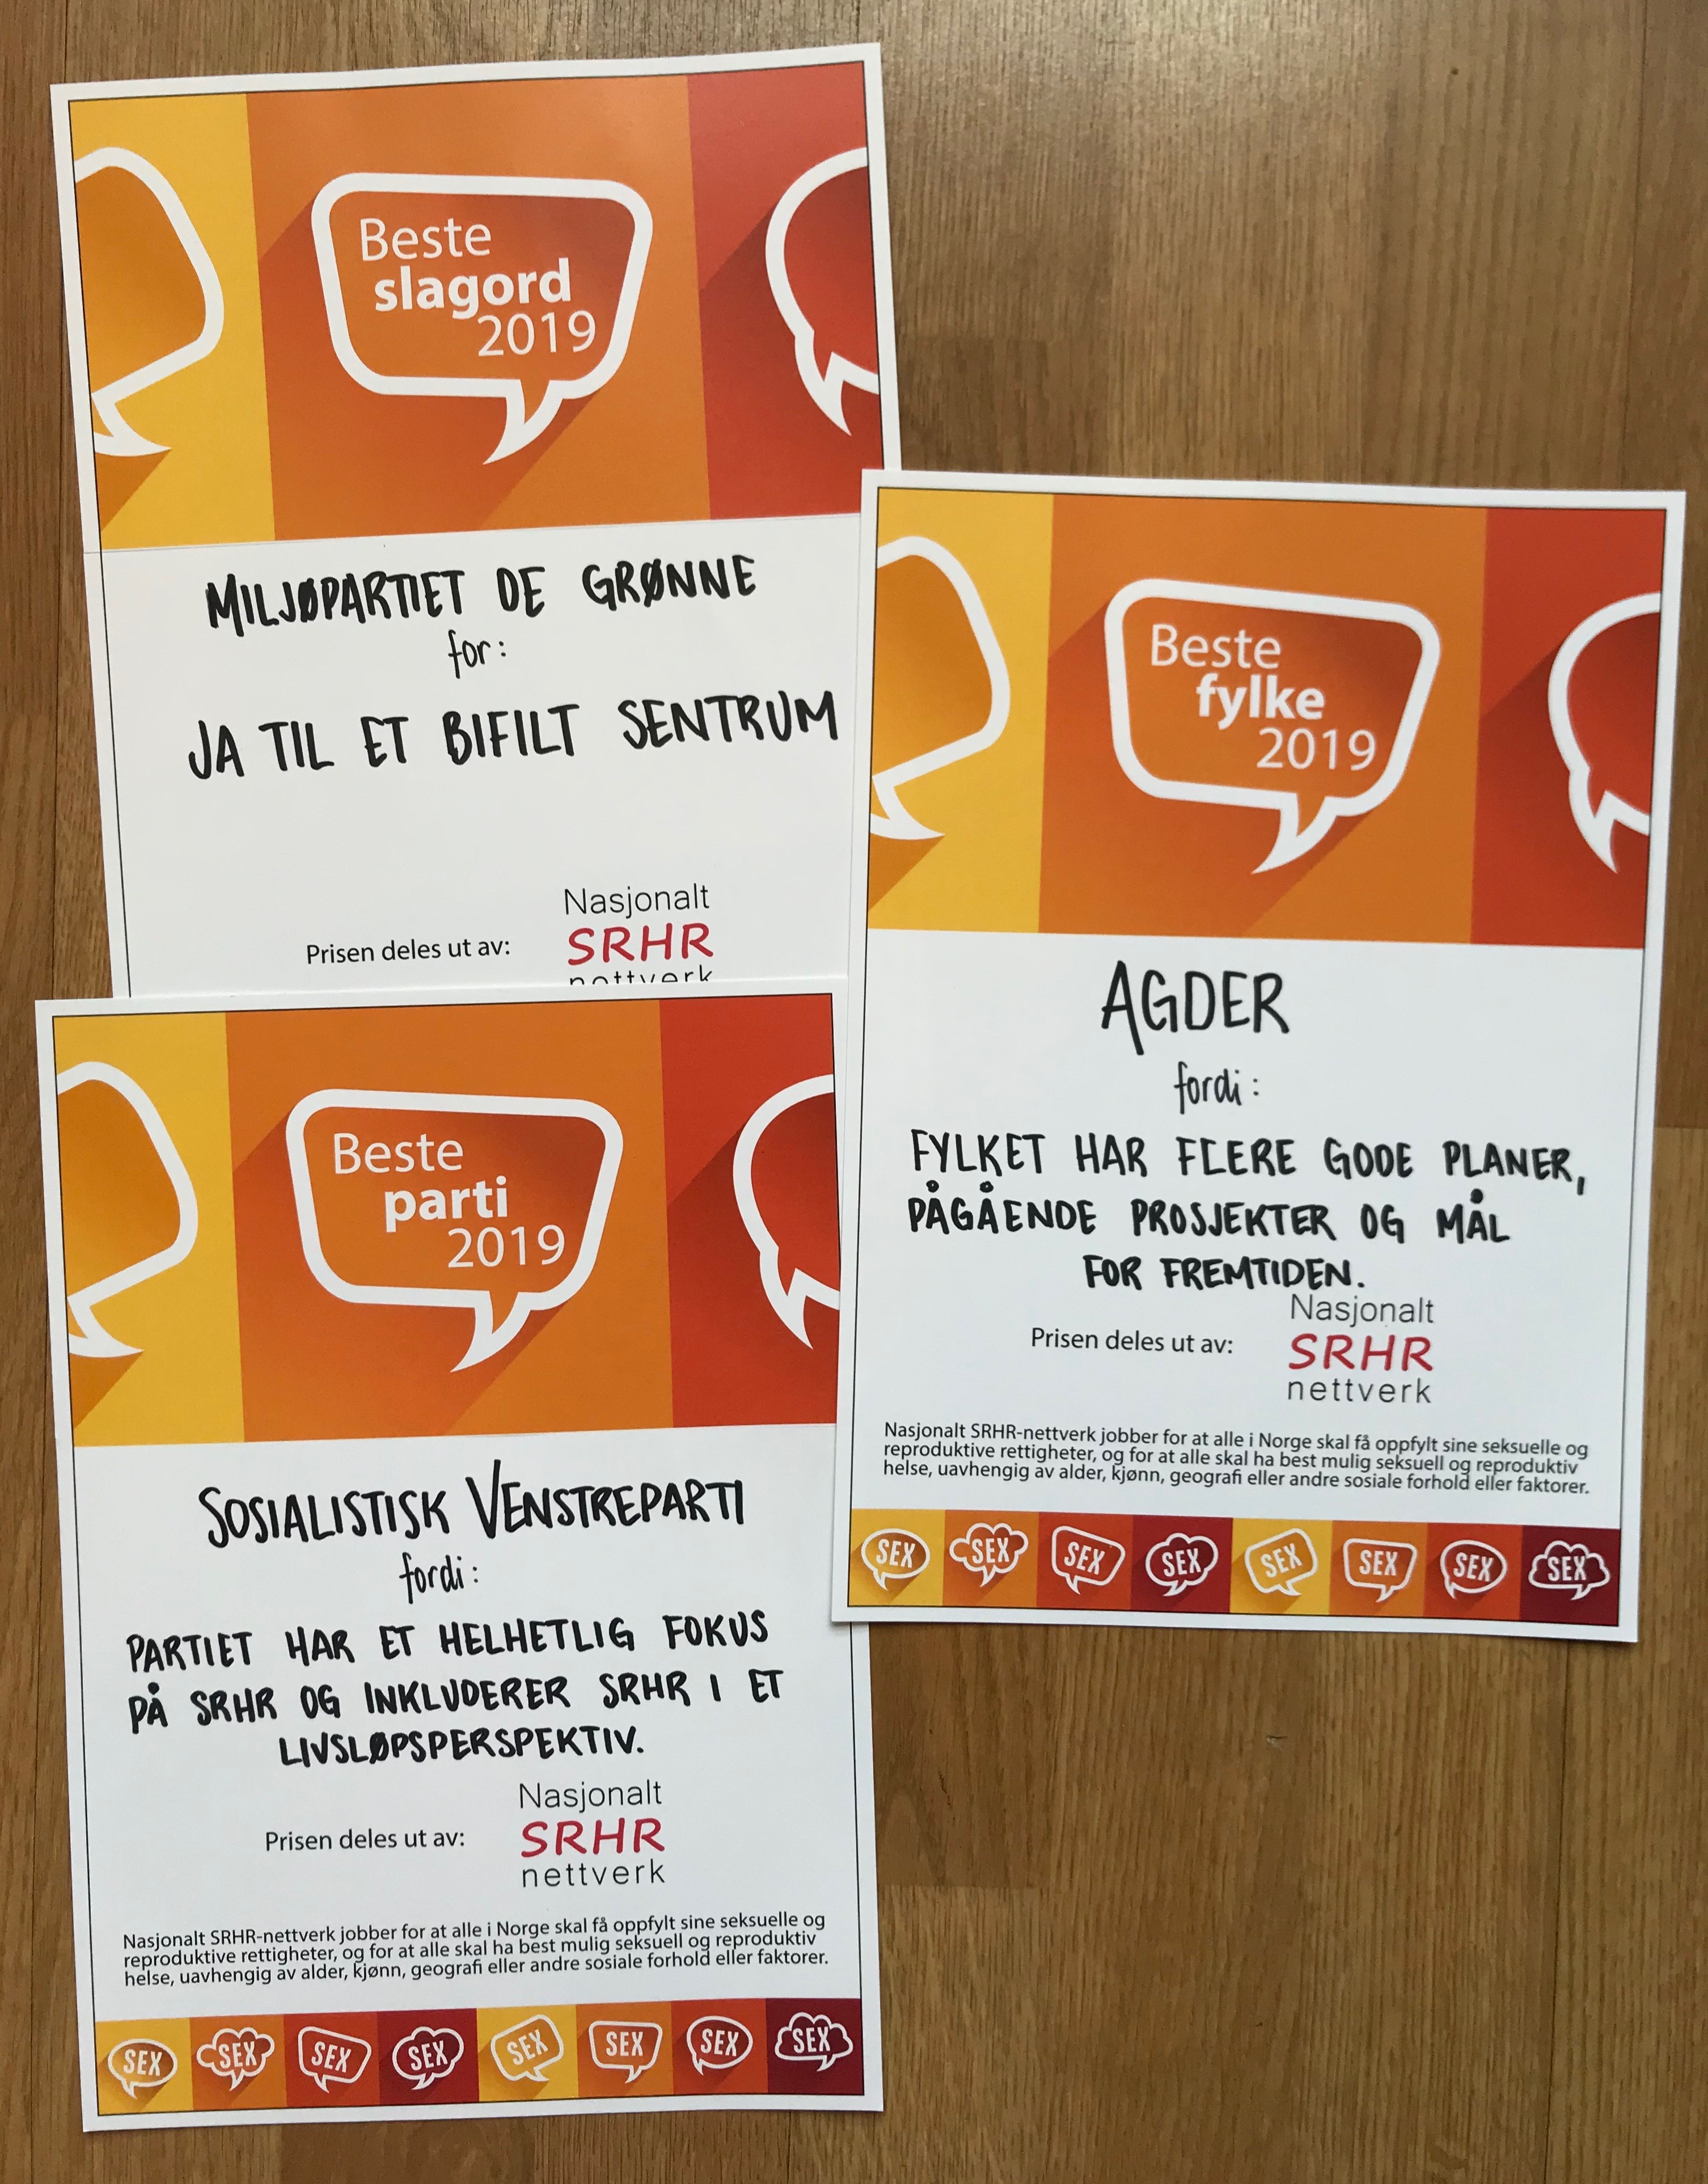 Beste
slagord
2019
MILJØPARTIET DE GRØNNE
for:
JA TIL ET BIFILT SENTRUM
Prisen deles ut av:
Nasjonalt
SRHR
nettverk
Beste
fylke
2019
AGDER
fordi:
FYLKET HAR FLERE GODE PLANER,
PÅGÅENDE PROSJEKTER OG MÅL
FOR FREMTIDEN.
Prisen deles ut av:
Nasjonalt
SRHR
nettverk
Nasjonalt SRHR-nettverk jobber for at alle i Norge skal få oppfylt sine seksuelle og
reproduktive rettigheter, og for at alle skal ha best mulig seksuell og reproduktiv
helse, uavhengig av alder, kjønn, geografi eller andre sosiale forhold eller faktorer.
SEX SEX SEX SEX SEX SEX SEX SEX
Beste
parti
2019
SOSIALISTISK VENSTREPARTI
fordi:
PARTIET HAR ET HELHETLIG FOKUS
PÅ SRHR OG INKLUDERER SRHR I ET
LIVSLØPSPERSPEKTIV.
Prisen deles ut av:
Nasjonalt
SRHR
nettverk
Nasjonalt SRHR-nettverk jobber for at alle i Norge skal få oppfylt sine seksuelle og
reproduktive rettigheter, og for at alle skal ha best mulig seksuell og reproduktiv
helse, uavhengig av alder, kjønn, geografi eller andre sosiale forhold eller faktorer.
SEX SEX SEX SEX SEX SEX SEX SEX